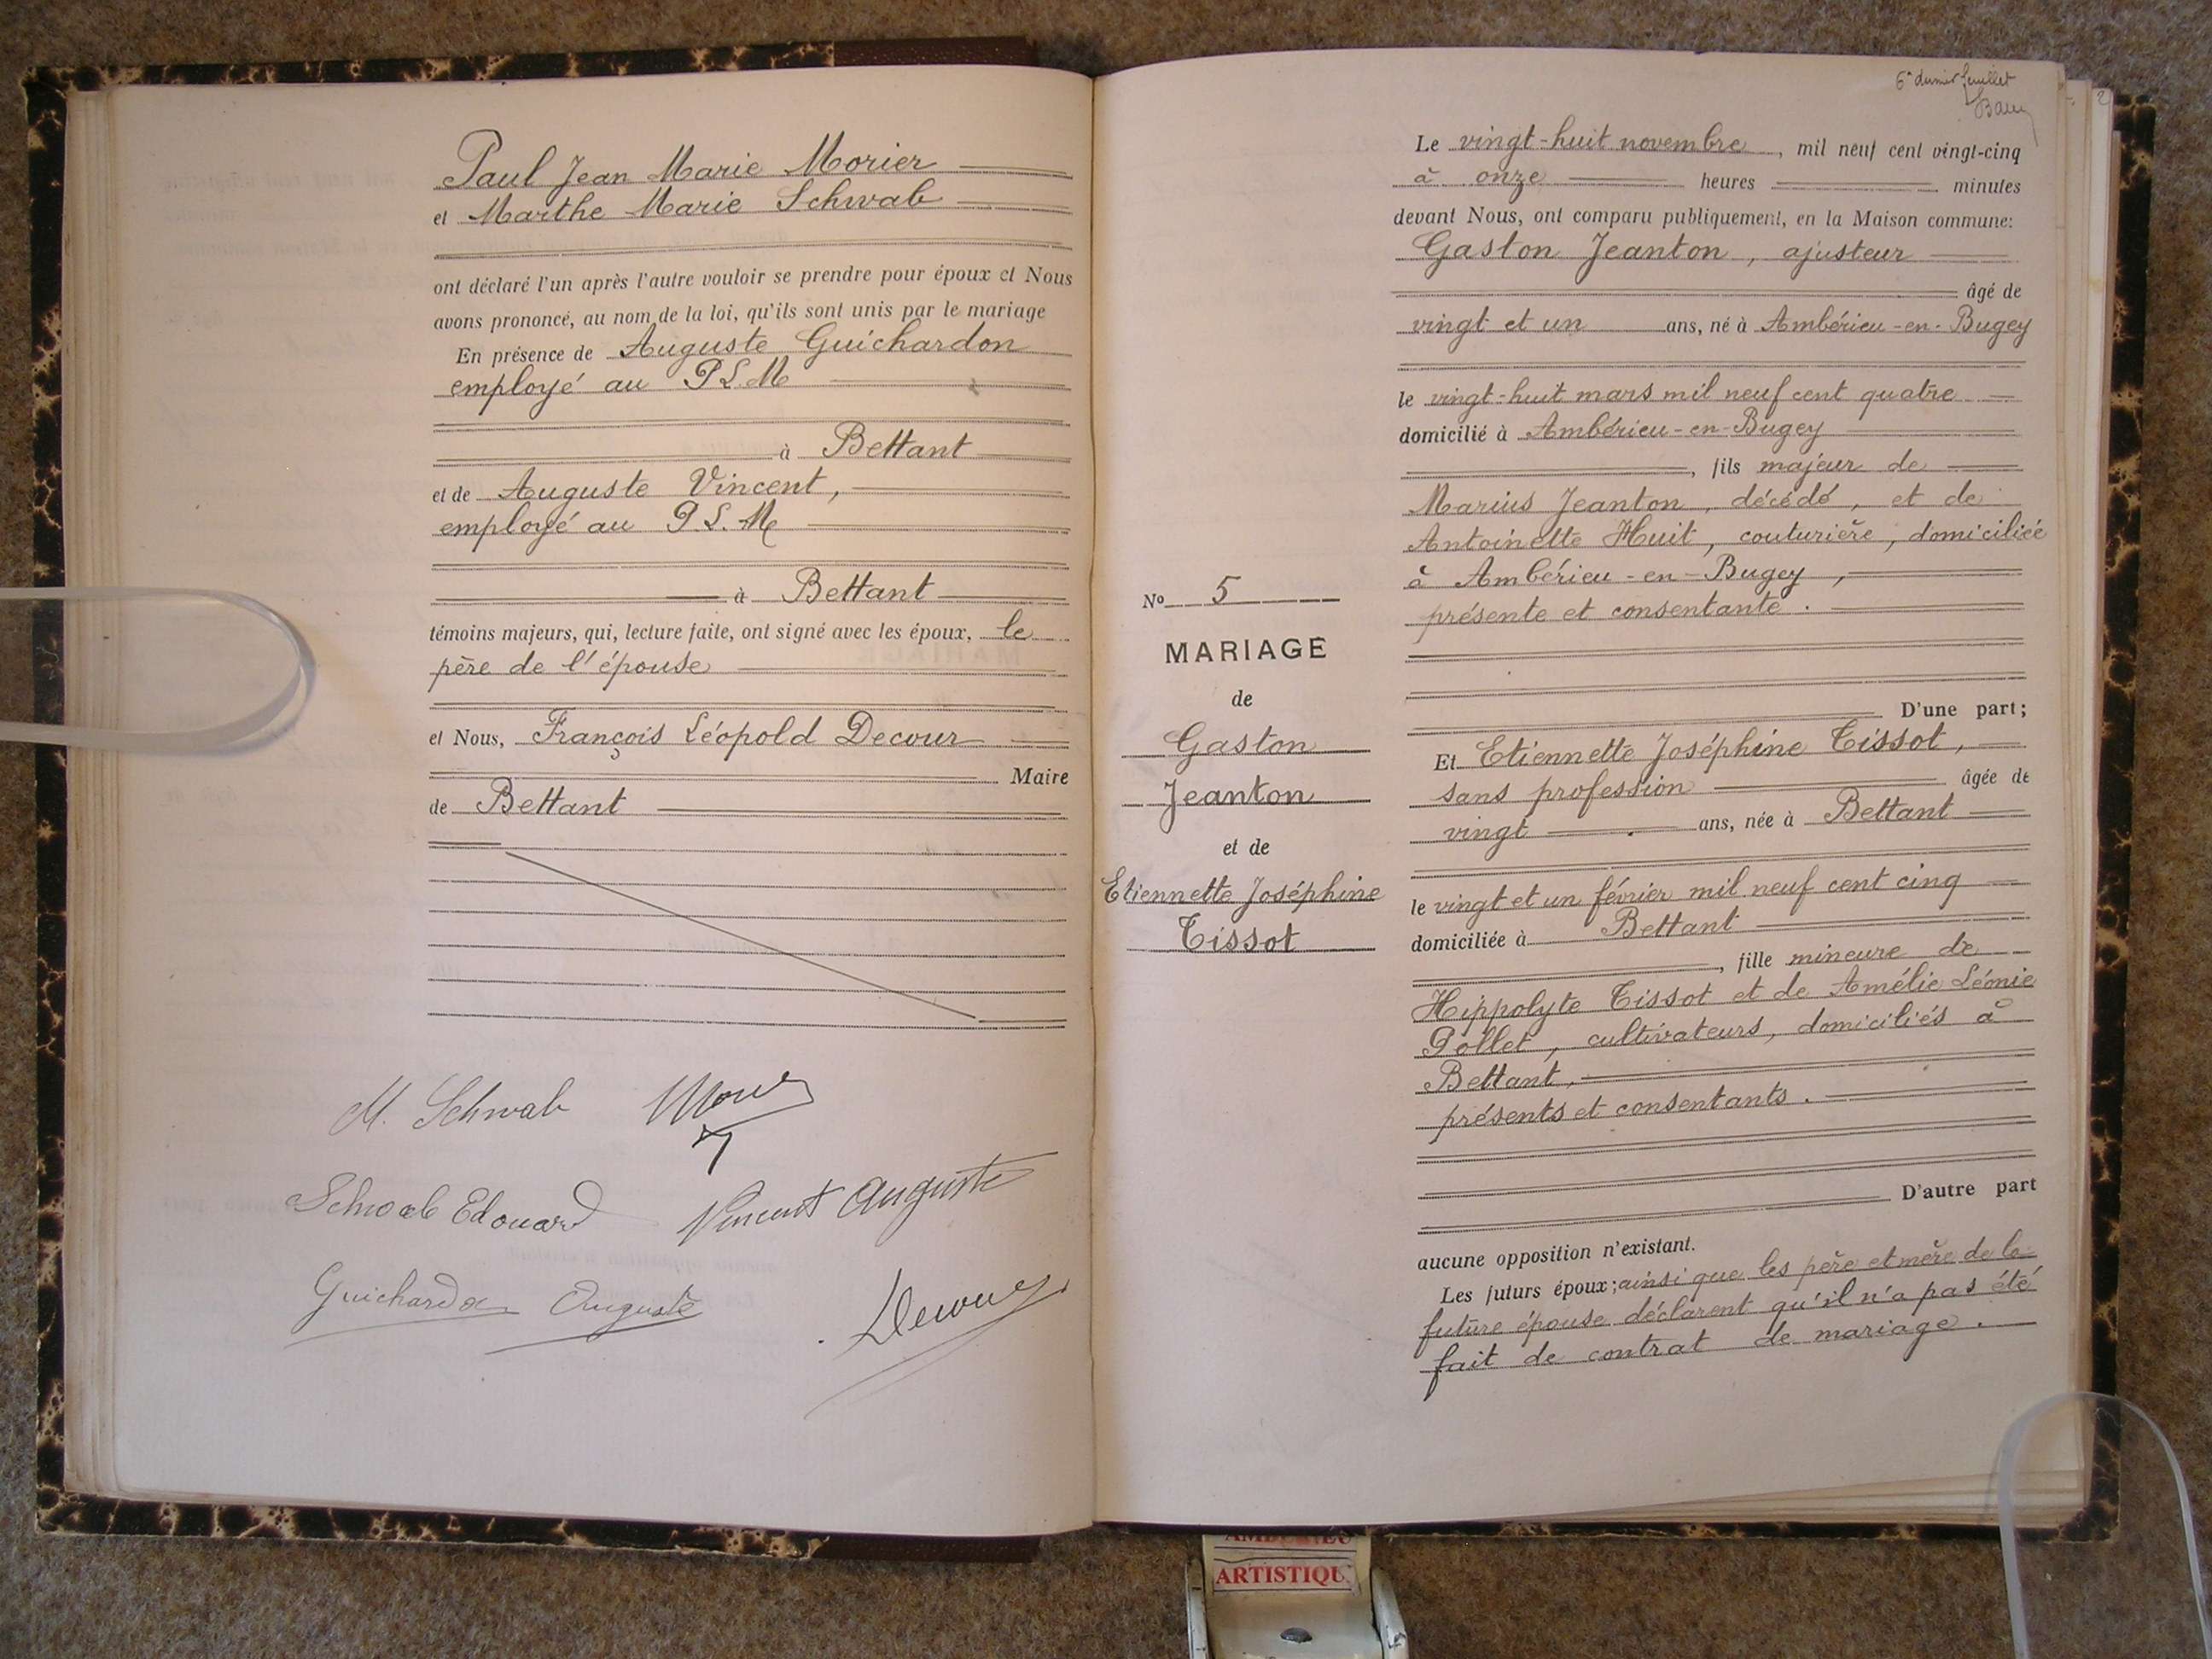 Paul Jean Marie Morier
et Marthe Marie Schwab
ont déclaré l'un après l'autre vouloir se prendre pour époux et Nous
avons prononcé, au nom de la loi, qu'ils sont unis par le mariage
En présence de Auguste Guichardon
employé au P.L.M
à Bettant
et de Auguste Vincent,
employé au P.L.M
à Bettant
témoins majeurs, qui, lecture faite, ont signé avec les époux, le
père de l'épouse
et Nous, François Léopold Decour
Maire
de Bettant
M. Schwab
Schwab Edouard Vincent Auguste
Guichardon Auguste
Decour
6e dernier feuillet
Le vingt-huit novembre, mil neuf cent vingt-cinq
à onze heures minutes
devant Nous, ont comparu publiquement, en la Maison commune:
Gaston Jeanton, ajusteur
âgé de
vingt et un ans, né à Ambérieu-en-Bugey
le vingt-huit mars mil neuf cent quatre
domicilié à Ambérieu-en-Bugey
, fils majeur de
Marius Jeanton, décédé, et de
Antoinette Huit, couturière, domiciliée
à Ambérieu-en-Bugey,
présente et consentante.
D'une part;
Et Etiennette Joséphine Tissot,
sans profession âgée de
vingt ans, née à Bettant
le vingt et un février mil neuf cent cinq
domiciliée à Bettant
, fille mineure de
Hippolyte Tissot et de Amélie Léonie
Pollet, cultivateurs, domiciliés à
Bettant,
présents et consentants.
D'autre part
aucune opposition n'existant.
Les futurs époux; ainsi que les père et mère de la
future épouse déclarent qu'il n'a pas été
fait de contrat de mariage.
No 5
MARIAGE
de
Gaston
Jeanton
et de
Etiennette Joséphine
Tissot
ARTISTIQU